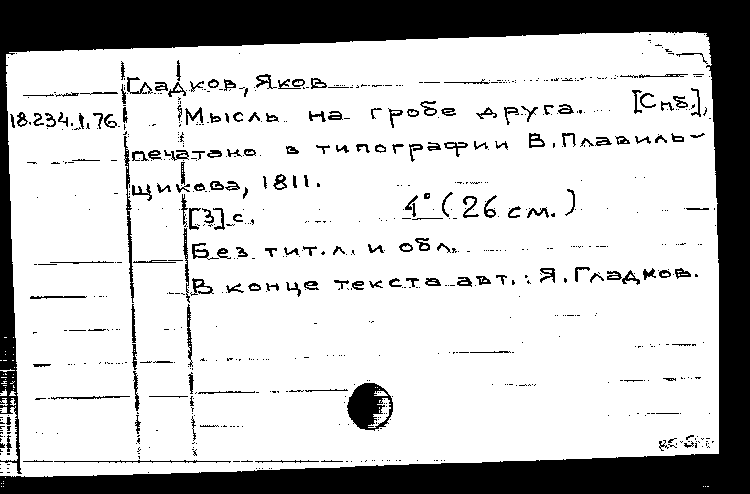 Гладков, Яков
18.234.1.76 Мысль на гробе друга. [Спб.],
печатано в типографии В. Плавиль-
щикова, 1811.
[3] с. 4° (26 см.)
Без тит. л. и обл.
В конце текста авт.: Я. Гладков.